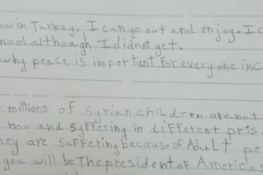 ow in Turkey. I can go out and enjoy. I c
hool although I did not get.
why peace is important for everyone inc
millions of Syrian children are not
now and Syffering in different prts
ey are Suffering because of Adult pe
you will be The president of America